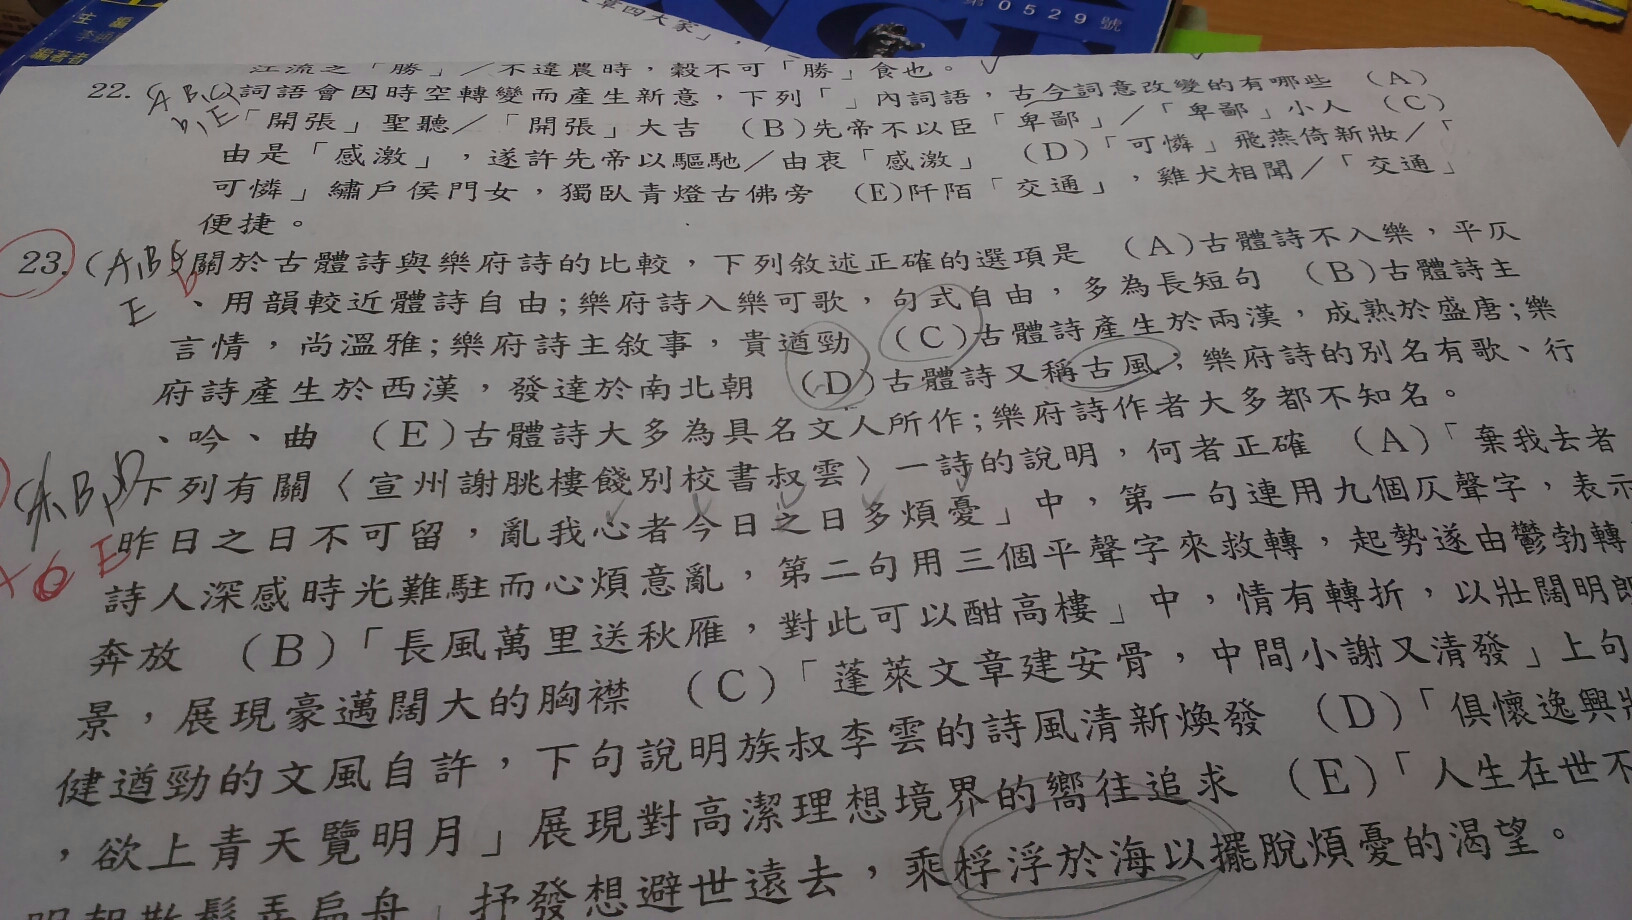 0529號
章四大家」,
主 編
編著者
江流之「勝」/不違農時,穀不可「勝」食也。
22. (A B,C 詞語會因時空轉變而產生新意,下列「」內詞語,古今詞意改變的有哪些 (A)
D,E「開張」聖聽/「開張」大吉 (B)先帝不以臣「卑鄙」/「卑鄙」小人 (C)
由是「感激」,遂許先帝以驅馳/由衷「感激」 (D)「可憐」飛燕倚新妝/「
可憐」繡戶侯門女,獨臥青燈古佛旁 (E)阡陌「交通」,雞犬相聞/「交通」
便捷。
23. (A,B 關於古體詩與樂府詩的比較,下列敘述正確的選項是 (A)古體詩不入樂,平仄
E 、用韻較近體詩自由;樂府詩入樂可歌,句式自由,多為長短句 (B)古體詩主
言情,尚溫雅;樂府詩主敘事,貴遒勁 (C)古體詩產生於兩漢,成熟於盛唐;樂
府詩產生於西漢,發達於南北朝 (D)古體詩又稱古風;樂府詩的別名有歌、行
、吟、曲 (E)古體詩大多為具名文人所作;樂府詩作者大多都不知名。
(A,B,D 下列有關〈宣州謝朓樓餞別校書叔雲〉一詩的說明,何者正確 (A)「棄我去者
E 昨日之日不可留,亂我心者今日之日多煩憂」中,第一句連用九個仄聲字,表示
詩人深感時光難駐而心煩意亂,第二句用三個平聲字來救轉,起勢遂由鬱勃轉
奔放 (B)「長風萬里送秋雁,對此可以酣高樓」中,情有轉折,以壯闊明朗
景,展現豪邁闊大的胸襟 (C)「蓬萊文章建安骨,中間小謝又清發」上句
健遒勁的文風自許,下句說明族叔李雲的詩風清新煥發 (D)「俱懷逸興壯
,欲上青天覽明月」展現對高潔理想境界的嚮往追求 (E)「人生在世不
明朝散髮弄扁舟」抒發想避世遠去,乘桴浮於海以擺脫煩憂的渴望。